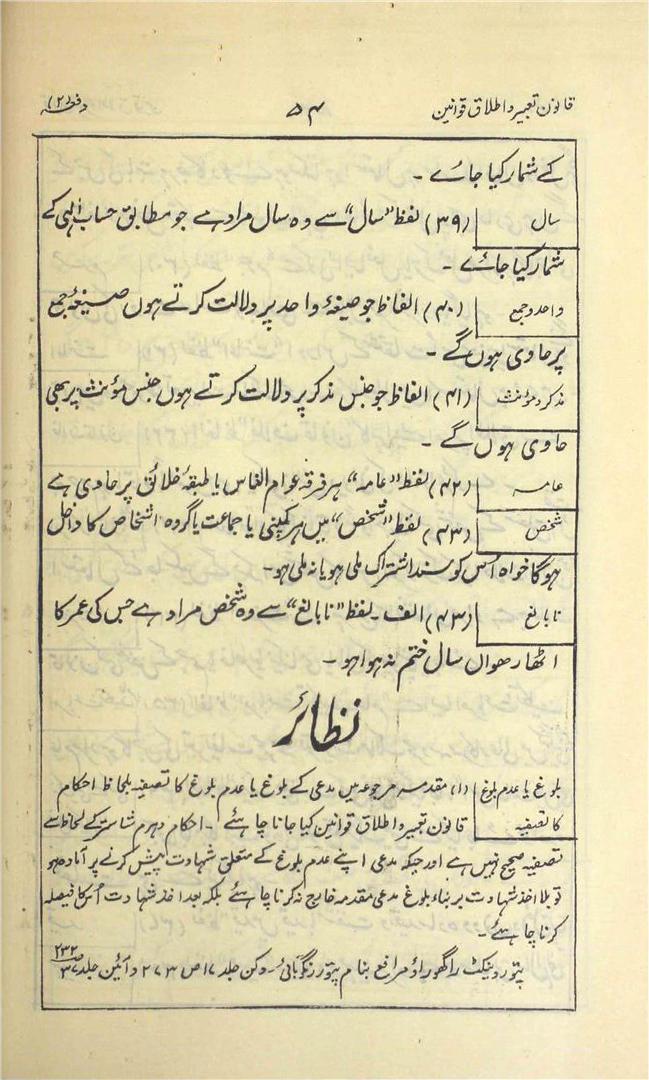 قانون تعبیر و اطلاق قوانین ۵۴ دفعہ (۲)
کے شمار کیا جائے ۔
سال (۳۹) لفظ "سال" سے وہ سال مراد ہے جو مطابق حساب الٰہی کے
شمار کیا جائے ۔
واحد و جمع (۴۰) الفاظ جو صیغۂ واحد پر دلالت کرتے ہوں صیغۂ جمع
پر حاوی ہوں گے ۔
مذکر و مؤنث (۴۱) الفاظ جو جنس مذکر پر دلالت کرتے ہوں جنس مؤنث پر بھی
حاوی ہوں گے ۔
عامہ (۴۲) لفظ "عامہ" ہر فرقہ عوام الناس یا طبقۂ خلائق پر حاوی ہے
شخص (۴۳) لفظ "شخص" میں ہر کمپنی یا جماعت یا گروہ اشخاص کا داخل
ہوگا خواہ اُس کو سند اشتراک ملی ہو یا نہ ملی ہو۔
نابالغ (۴۳) الف ۔ لفظ "نابالغ" سے وہ شخص مراد ہے جس کی عمر کا
اٹھارھواں سال ختم نہ ہوا ہو ۔
نظائر
بلوغ یا عدم بلوغ (۱) مقدمہ مرجوعہ میں مدعی کے بلوغ یا عدم بلوغ کا تصفیہ بلحاظ احکام
کا تصفیہ قانون تعبیر و اطلاق قوانین کیا جانا چاہئے ۔ احکام دہرم شاستر کے لحاظ سے
تصفیہ صحیح نہیں ہے اور جبکہ مدعی اپنے عدم بلوغ کے متعلق شہادت پیش کرنے پر آمادہ ہو
تو بلا اخذ شہادت بر بناء بلوغ مدعی مقدمہ خارج نہ کرنا چاہئے بلکہ بعد اخذ شہادت اُس کا فیصلہ
کرنا چاہئے ۔
وینکٹ راگھوراؤ مرافع بنام رنگوبائی ۔ دکن جلد ۱۷ ص ۲۷۳ و آئین جلد ۳۷ ص ۲۳۲